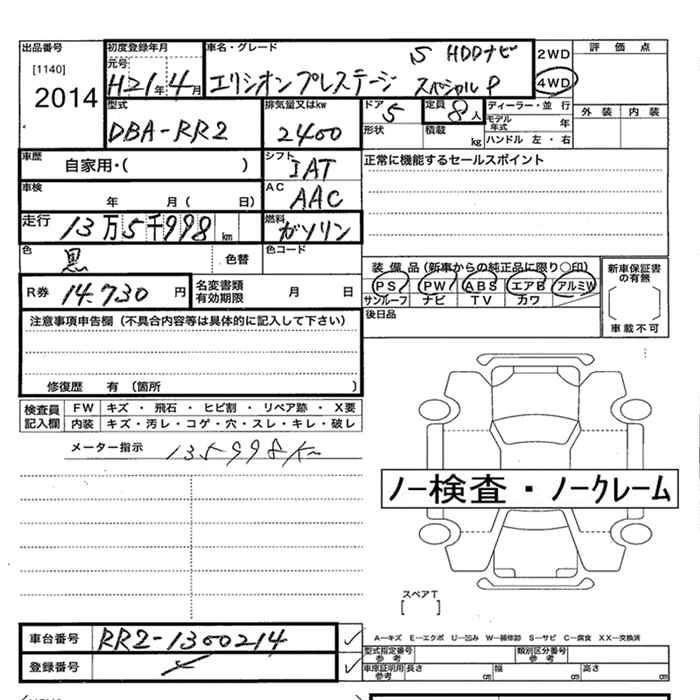 出品番号 初度登録年月 車名・グレード 2WD 評価点
[1140] 元号 S HDDナビ
2014 H21年 4月 エリシオンプレステージ スペシャルP 4WD
型式 排気量又はkw ドア 定員 ディーラー・並行 外装 内装
DBA-RR2 2400 5 8人 モデル年式 年
形状 積載 kg ハンドル 左・右
車歴 自家用・( ) シフト IAT 正常に機能するセールスポイント
車検 年 月( 日) AC AAC
走行 13万5千998km 燃料 ガソリン
色 黒 色替 色コード
装備品(新車からの純正品に限り○印) 新車保証書の有無
R券 14,730円 名変書類有効期限 月 日 PS PW ABS エアB アルミW
サンルーフ ナビ TV カワ
注意事項申告欄(不具合内容等は具体的に記入して下さい) 後日品 車載不可
修復歴 有(箇所 )
検査員記入欄 FW キズ・飛石・ヒビ割・リペア跡・X要
内装 キズ・汚レ・コゲ・穴・スレ・キレ・破レ
メーター指示 135998km
ノー検査・ノークレーム
スペアT
[ ]
車台番号 RR2-1300214 A-キズ E-エクボ U-凹み W-補修跡 S-サビ C-腐食 XX-交換済
型式指定番号 参考 類別区分番号 参考
登録番号 車庫証明用 参考 長さ cm 幅 cm 高さ cm